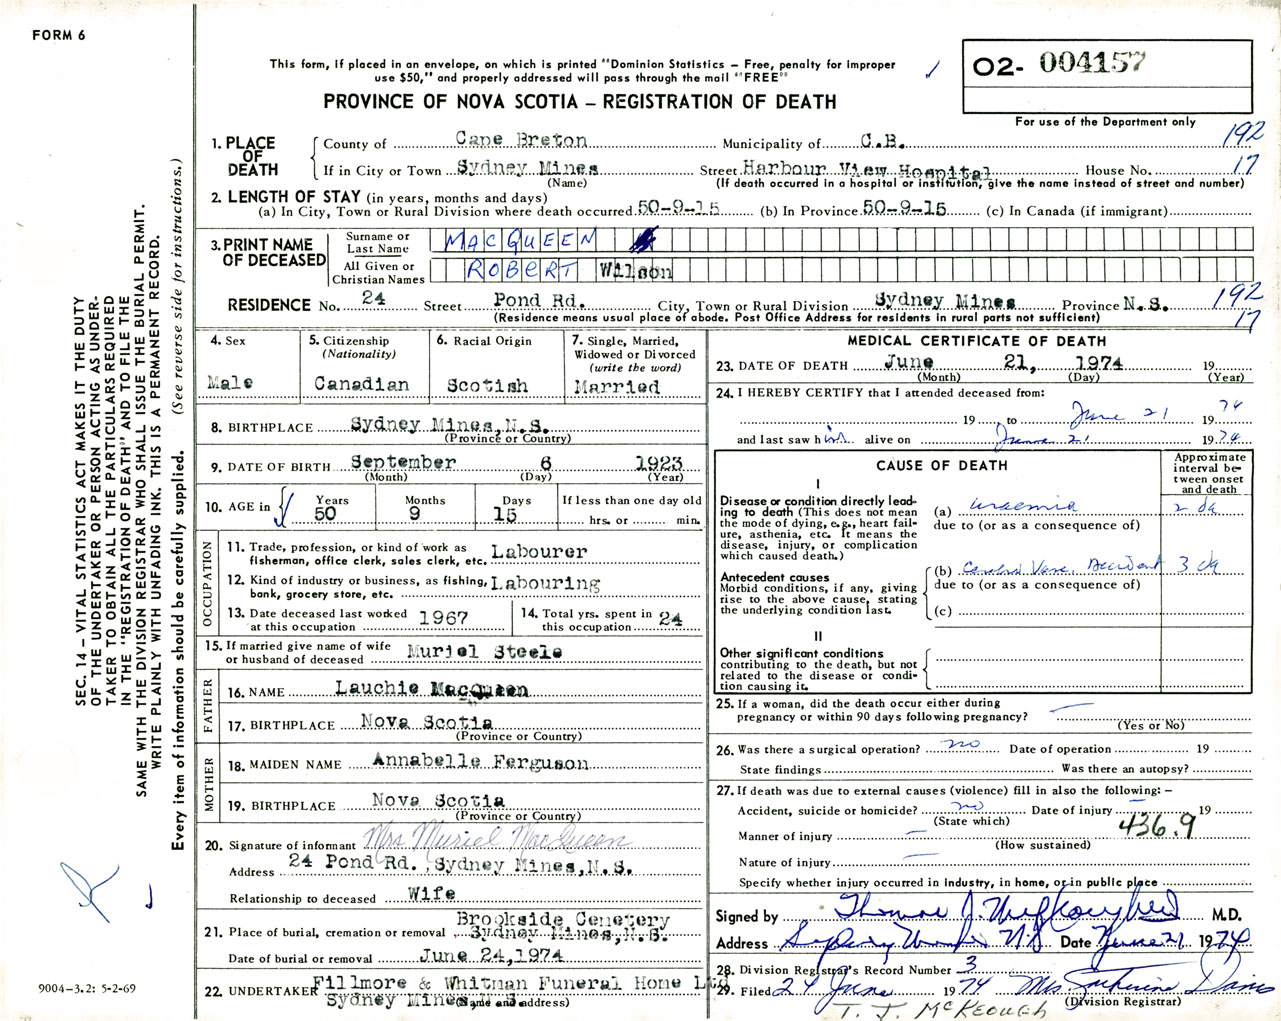 FORM 6
This form, if placed in an envelope, on which is printed "Dominion Statistics – Free, penalty for improper
use $50," and properly addressed will pass through the mail "FREE"
PROVINCE OF NOVA SCOTIA – REGISTRATION OF DEATH
O2- 004157
For use of the Department only
1. PLACE OF DEATH
County of Cape Breton Municipality of C.B. 192
If in City or Town Sydney Mines Street Harbour View Hospital House No. 17
(Name) (If death occurred in a hospital or institution, give the name instead of street and number)
2. LENGTH OF STAY (in years, months and days)
(a) In City, Town or Rural Division where death occurred 50-9-15 (b) In Province 50-9-15 (c) In Canada (if immigrant)
3. PRINT NAME OF DECEASED
Surname or Last Name MACQUEEN
All Given or Christian Names ROBERT Wilson
RESIDENCE No. 24 Street Pond Rd. City, Town or Rural Division Sydney Mines Province N.S. 192
(Residence means usual place of abode. Post Office Address for residents in rural parts not sufficient) 17
4. Sex
Male
5. Citizenship
(Nationality)
Canadian
6. Racial Origin
Scotish
7. Single, Married,
Widowed or Divorced
(write the word)
Married
8. BIRTHPLACE Sydney Mines, N.S.
(Province or Country)
9. DATE OF BIRTH September 6 1923
(Month) (Day) (Year)
10. AGE in
Years Months Days If less than one day old
50 9 15 hrs. or min.
OCCUPATION
11. Trade, profession, or kind of work as
fisherman, office clerk, sales clerk, etc. Labourer
12. Kind of industry or business, as fishing,
bank, grocery store, etc. Labouring
13. Date deceased last worked
at this occupation 1967
14. Total yrs. spent in
this occupation 24
15. If married give name of wife
or husband of deceased Muriel Steele
FATHER
16. NAME Lauchie MacQueen
17. BIRTHPLACE Nova Scotia
(Province or Country)
MOTHER
18. MAIDEN NAME Annabelle Ferguson
19. BIRTHPLACE Nova Scotia
(Province or Country)
20. Signature of informant Mrs Muriel MacQueen
Address 24 Pond Rd., Sydney Mines, N.S.
Relationship to deceased Wife
Brookside Cemetery
21. Place of burial, cremation or removal Sydney Mines, N.S.
Date of burial or removal June 24, 1974
22. UNDERTAKER Fillmore & Whitman Funeral Home Ltd
Sydney Mines, N.S.
(Name and address)
MEDICAL CERTIFICATE OF DEATH
23. DATE OF DEATH June 21, 1974 19
(Month) (Day) (Year)
24. I HEREBY CERTIFY that I attended deceased from:
19 to June 21 1974
and last saw him alive on June 21 1974
CAUSE OF DEATH
Approximate
interval be-
tween onset
and death
I
Disease or condition directly lead-
ing to death (This does not mean
the mode of dying, e.g., heart fail-
ure, asthenia, etc. It means the
disease, injury, or complication
which caused death.)
(a) uraemia 2 da
due to (or as a consequence of)
Antecedent causes
Morbid conditions, if any, giving
rise to the above cause, stating
the underlying condition last.
(b) Cerebral Vasc. Accident 3 da
due to (or as a consequence of)
(c)
II
Other significant conditions
contributing to the death, but not
related to the disease or condi-
tion causing it.
25. If a woman, did the death occur either during
pregnancy or within 90 days following pregnancy?
(Yes or No)
26. Was there a surgical operation? no Date of operation 19
State findings Was there an autopsy?
27. If death was due to external causes (violence) fill in also the following: –
Accident, suicide or homicide? no Date of injury 19
(State which)
436.9
Manner of injury
(How sustained)
Nature of injury
Specify whether injury occurred in Industry, in home, or in public place
Signed by Thomas J. McKeough M.D.
Address Sydney Mines N.S. Date June 21 1974
28. Division Registrar's Record Number 3
29. Filed 24 June 1974 Mrs Catherine Davis
(Division Registrar)
T. J. McKEOUGH
SEC. 14 – VITAL STATISTICS ACT MAKES IT THE DUTY
OF THE UNDERTAKER OR PERSON ACTING AS UNDER-
TAKER TO OBTAIN ALL THE PARTICULARS REQUIRED
IN THE "REGISTRATION OF DEATH" AND TO FILE THE
SAME WITH THE DIVISION REGISTRAR WHO SHALL ISSUE THE BURIAL PERMIT.
WRITE PLAINLY WITH UNFADING INK. THIS IS A PERMANENT RECORD.
Every item of information should be carefully supplied. (See reverse side for instructions.)
9004–3.2: 5-2-69